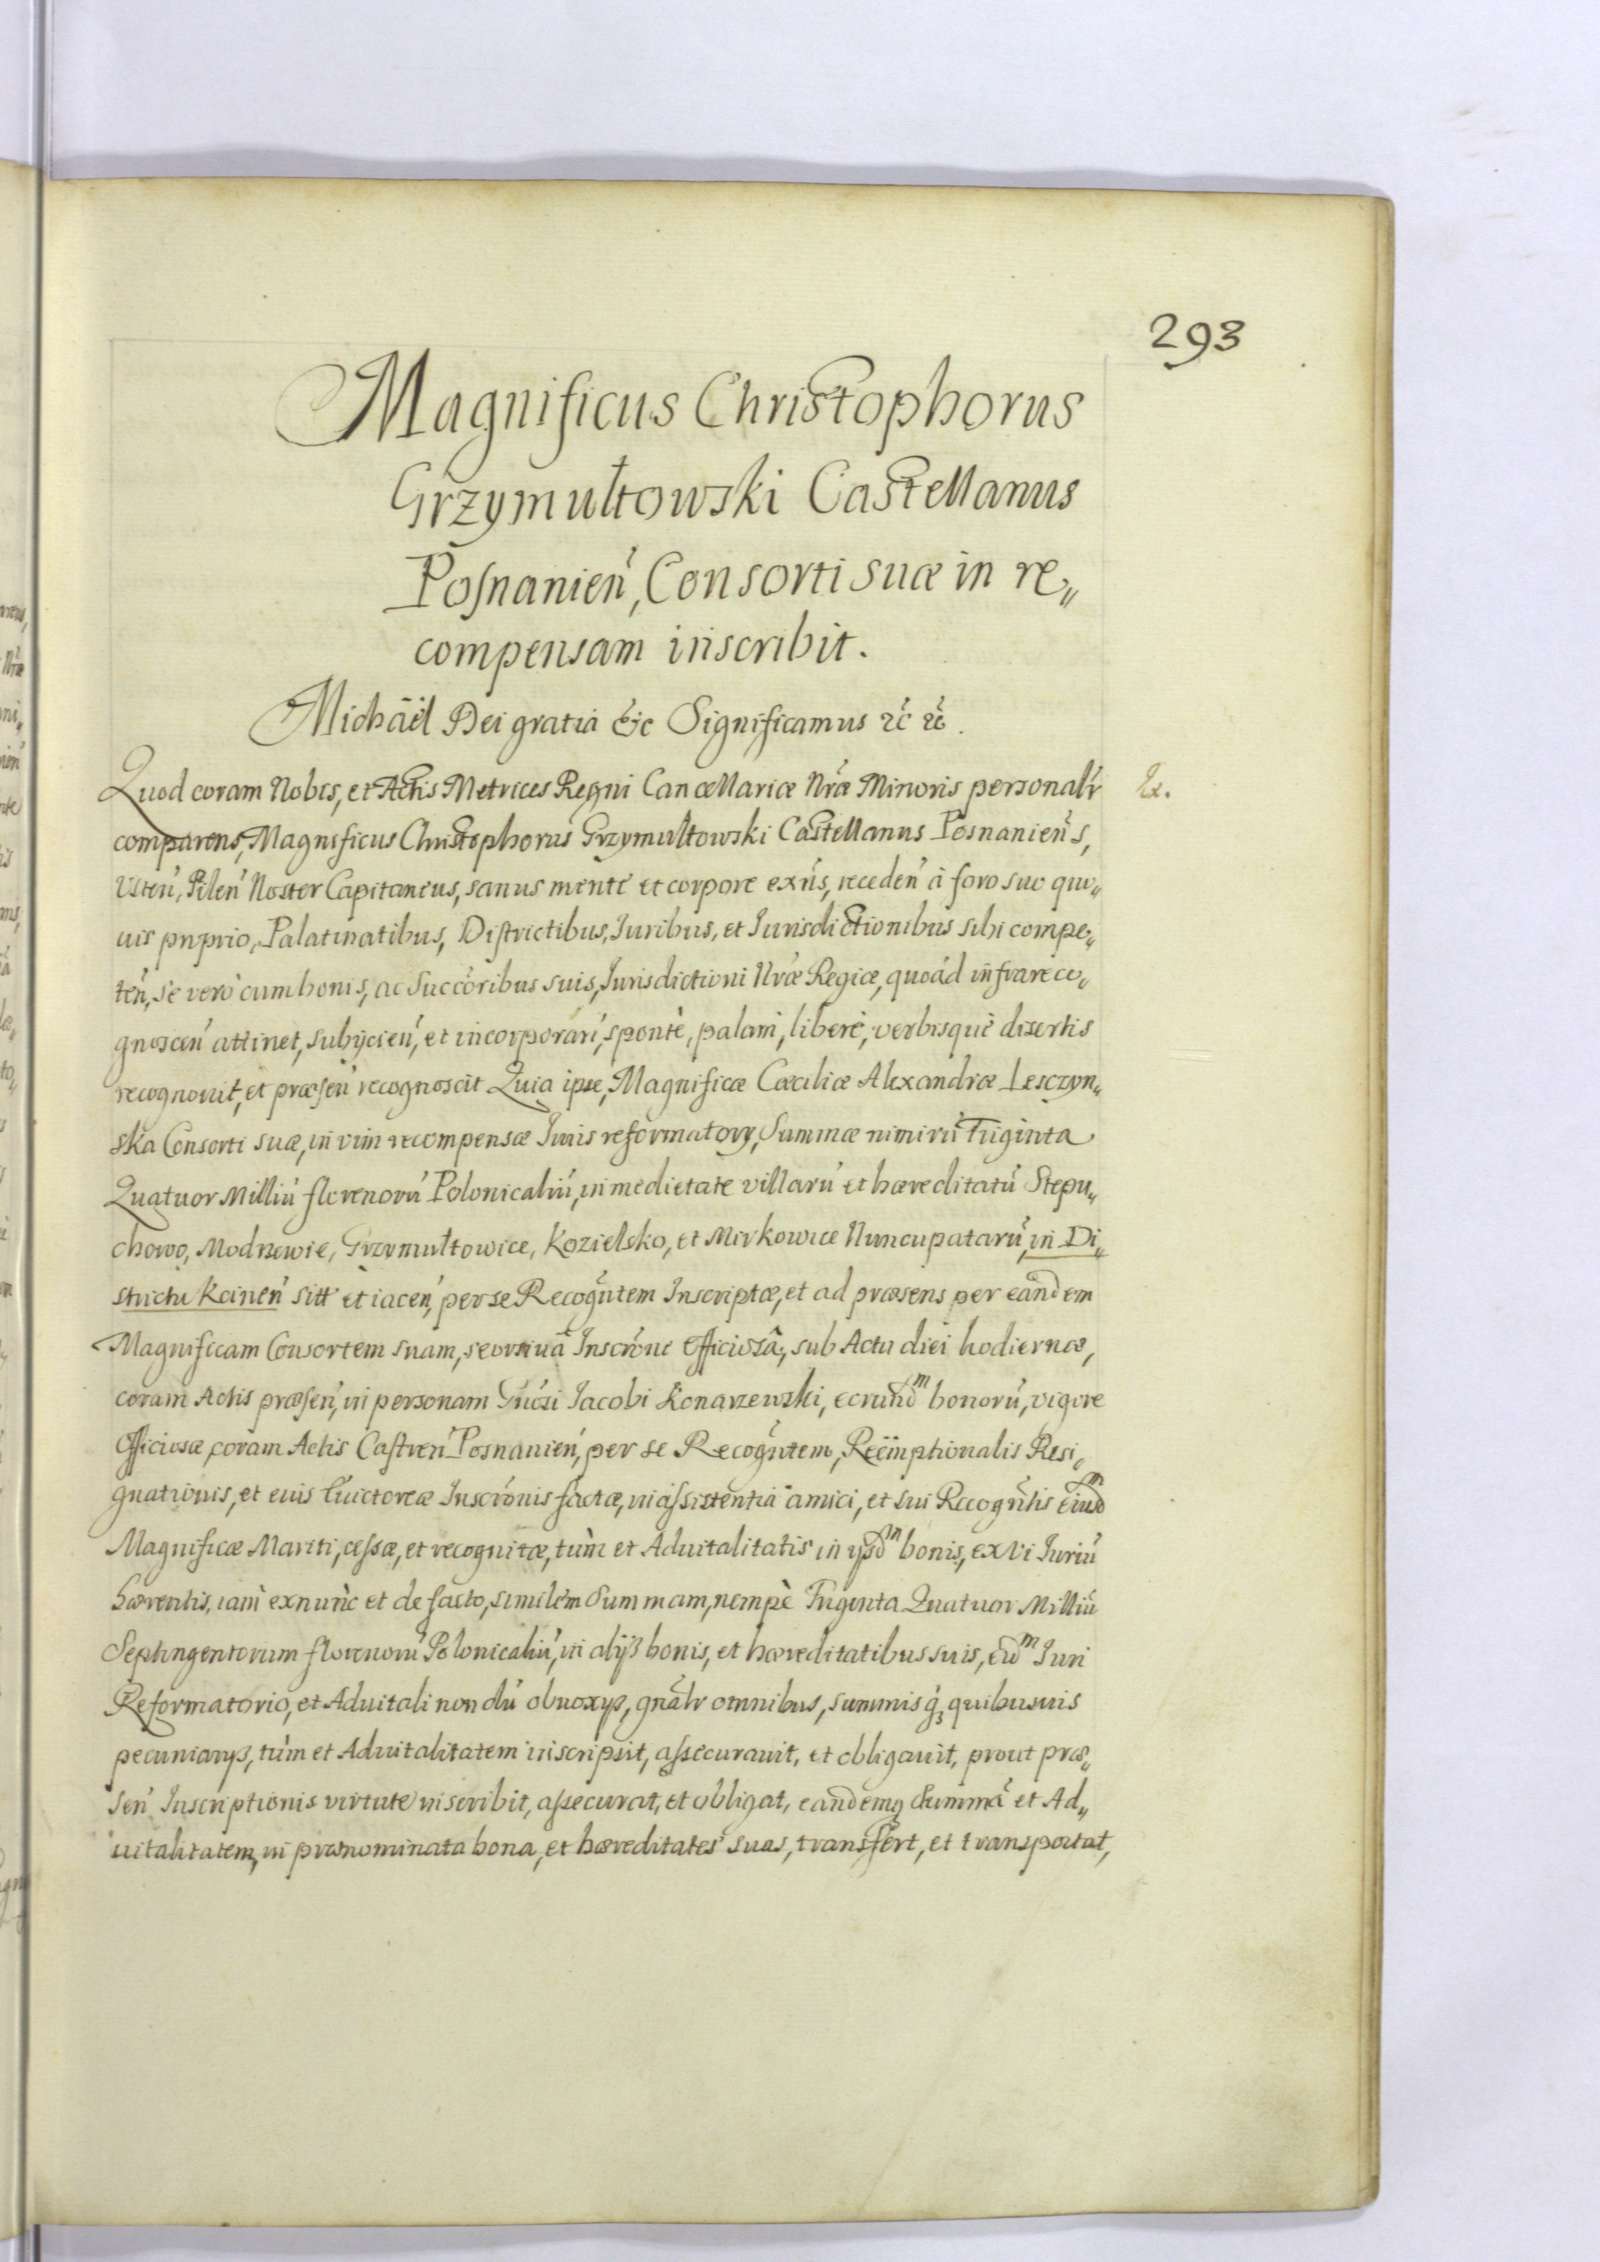 293
Magnificus Christophorus
Grzymułtowski Castellanus
Posnanień, Consorti suæ in re„
compensam inscribit.
Michäel Dei gratia &c Significamus &c &c.
Quod coram Nobis, et Actis Metrices Regni Cancellariæ Nræ Minoris personalr
comparens, Magnificus Christophorus Grzymułtowski Castellanus Posnanieńs,
Usteń, Pileń Noster Capitaneus, sanus mente et corpore exńs, recedeń à foro suo quo„
uis proprio, Palatinatibus, Districtibus, Iuribus, et Iurisdictionibus sibi compe„
teń, se verò cum bonis, ac Succoribus suis, Iurisdictioni Nræ Regiæ, quoad infra reco„
gnosceń attinet, subijcień, et incorporań, spontè, palam, liberè, verbisquè disertis
recognouit, et præseń recognoscit Quia ipse, Magnificæ Cæciliæ Alexandræ Lesczyn„
ska Consorti suæ, in vim recompensæ Iuris reformatory, Summæ nimirú Triginta
Quatuor Milliú florenorú Polonicaliú, in medietate villarú et hæreditatú Stepu„
chowo, Modrzewie, Grzymułtowice, Kozielsko, et Mirkowice Nuncupatarú, in Di„
strictu Kcineń sitt et iaceń, per se Recogńtem Inscriptæ, et ad præsens per eandem
Magnificam Consortem suam, seorsiuâ Inscrõne Officiosâ, sub Actu diei hodiernæ,
coram Actis præseń, in personam Gńosi Iacobi Konarzewski, eorundm bonorú, vigore
Officiosæ, coram Actis Castreń Posnanień, per se Recogńtem, Reëmptionalis Resi„
gnationis, et euis Euictoreæ Inscrõnis factæ, in assistentia amici, et sui Recogńtis eiusdm
Magnificæ Mariti, cessæ, et recognitæ, tùm et Aduitalitatis in ijsdm bonis, ex Vi Iuriú
hærentis, iam exnunc et de facto, similem Summam, nempè Triginta Quatuor Milliú
Septingentorum florenorú Polonicaliú, in alijs bonis, et hæreditatibus suis, eidm Iuri
Reformatorio, et Aduitali non dú obnoxijs, gnâlr omnibus, summisq3 quibusuis
pecuniarijs, tùm et Aduitalitatem inscripsit, assecurauit, et obligauit, prout præ„
seń Inscriptionis virtute inscribit, assecurat, et obligat, eandemq Summã et Ad„
uitalitatem, in prænominata bona, et hæreditates suas, transfert, et transportat,